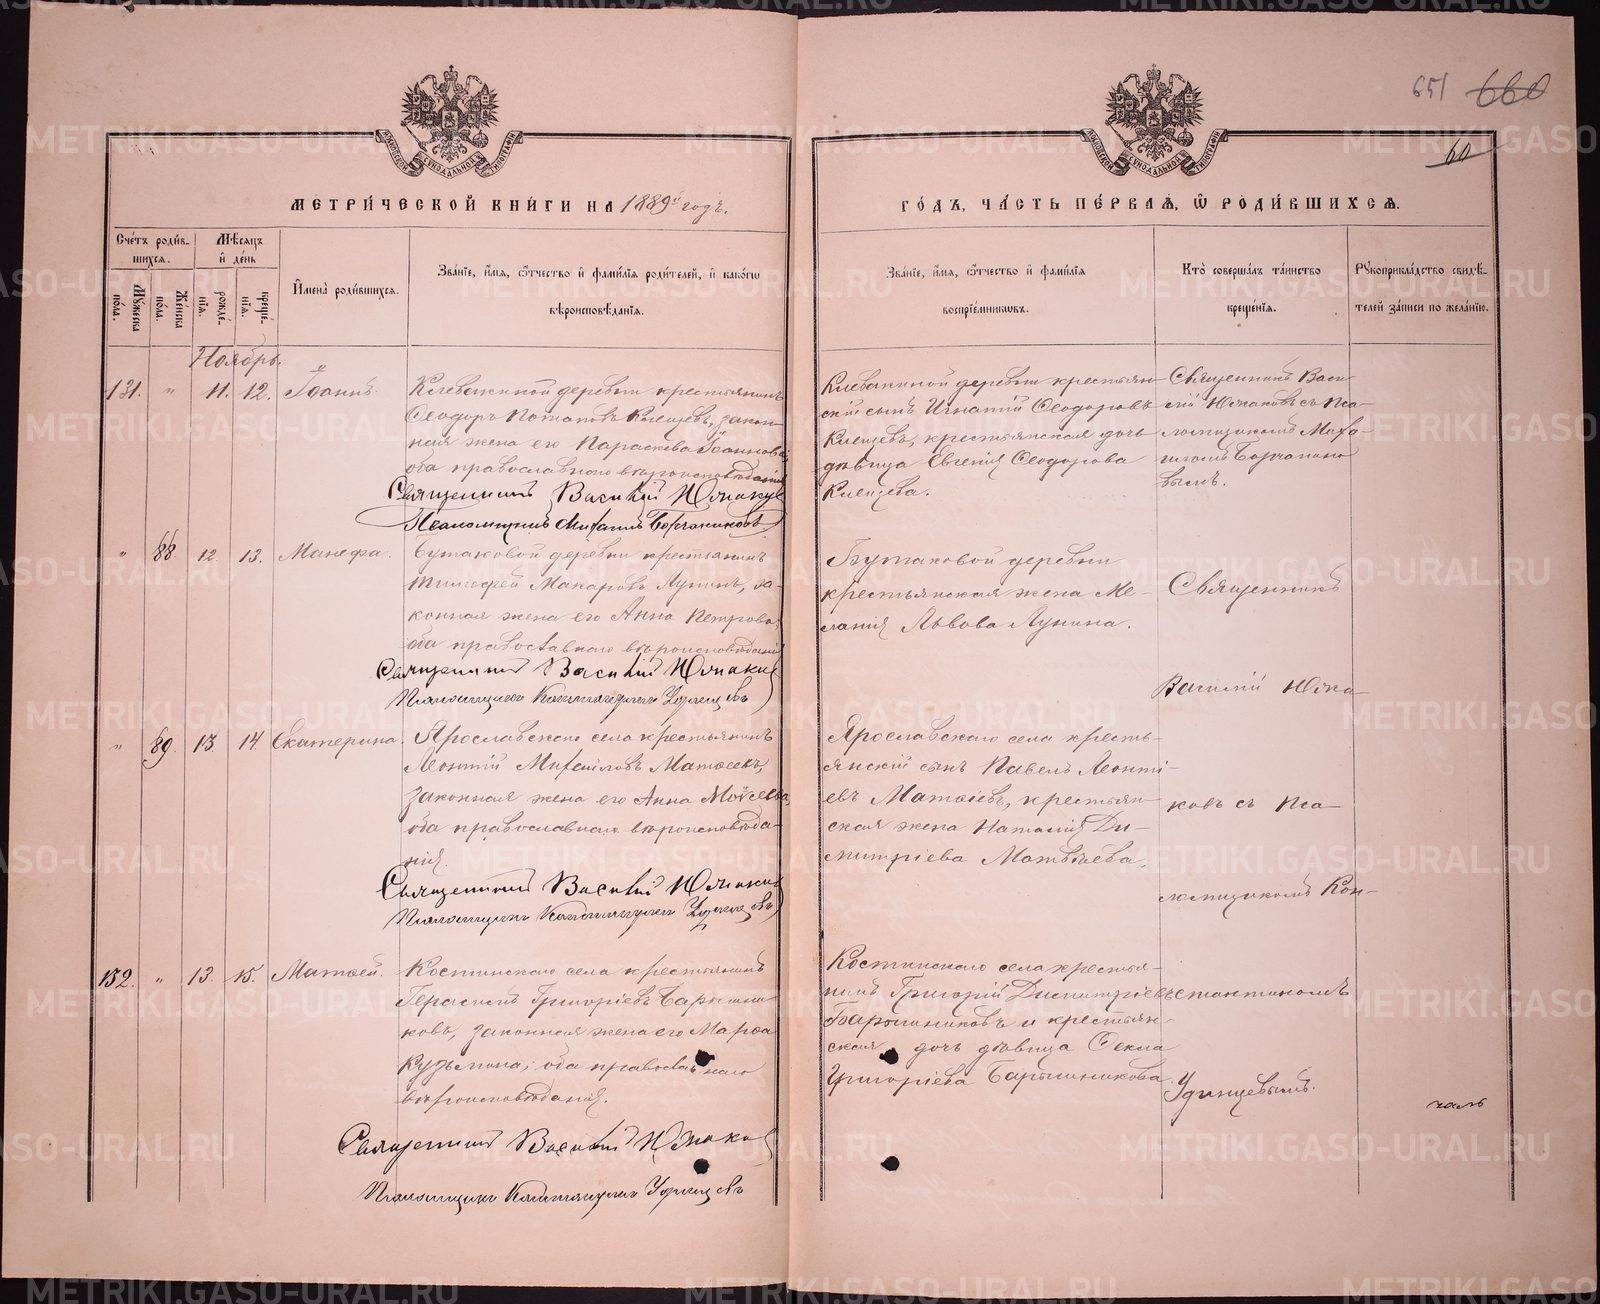 651 660
60
МЕТРИ́ЧЕСКОЙ КНИ́ГИ НА 1889й годъ.
ГО́ДЪ, ЧА́СТЬ ПЕ́РВАѦ, Ѿ РОДИ́ВШИХСѦ.
Сче́тъ роди́в-
шихсѧ.
Мꙋ́жеска по́ла.
Же́нска по́ла.
Мѣ́сѧцъ
и҆ де́нь
рожде́-
нїѧ.
креще́-
нїѧ.
И҆мена̀ роди́вшихсѧ.
Зва́нїе, и҆́мѧ, ѻ҆́тчество и҆ фамі́лїѧ роди́телей, и҆ како́гѡ
вѣроисповѣ́данїѧ.
Зва́нїе, и҆́мѧ, ѻ҆́тчество и҆ фамі́лїѧ
воспрїе́мникѡвъ.
Кто̀ соверша́лъ та́инство
креще́нїѧ.
Рꙋкоприкла́дство свидѣ́-
телей за́писи по жела́нїю.
Ноябрь.
131. " 11. 12. Іоаннъ.
Клевакиной деревни крестьянинъ
Ѳеодоръ Потаповъ Клещевъ, закон-
ная жена его Параскева Іоаннова
оба православнаго вѣроисповѣданія
Священникъ Василій Юмаковъ
Псаломщикъ Михаилъ
Клевакиной деревни крестьян-
скій сынъ Игнатій Ѳеодоровъ
Клещевъ, крестьянская дочь
дѣвица Евгенія Ѳеодорова
Клещева.
Священникъ Васи-
лій Юмаковъ съ Пса-
ломщикомъ Миха-
иломъ
вымъ.
" 88. 12. 13. Манефа.
Бутаковой деревни крестьянинъ
Тимоѳей Макаровъ Лунинъ, за-
конная жена его Анна Петрова
оба православнаго вѣроисповѣданія
Священникъ Василій Юмаковъ
Псаломщикъ Константинъ Удинцевъ
Бутаковой деревни
крестьянская жена Ме-
ланія Львова Лунина.
Священникъ
Василій Юма-
" 89. 13. 14. Екатерина.
Ярославскаго села крестьянинъ
Леонтій Михаиловъ Матѳеевъ,
законная жена его Анна Моѵсеева,
оба православнаго вѣроисповѣда-
нія.
Священникъ Василій Юмаковъ
Псаломщикъ Константинъ Удинцевъ
Ярославскаго села кресть-
янскій сынъ Павелъ Леонті-
евъ Матѳіевъ, крестьян-
ская жена Наталія Ди-
митріева Матвѣева.
ковъ съ Пса-
ломщикомъ Кон-
132. " 13. 15. Матѳей.
Костинскаго села крестьянинъ
Герасимъ Григоріевъ Барышни-
ковъ, законная жена его Марѳа
Кузьмина, оба православнаго
вѣроисповѣданія.
Священникъ Василій Юмаковъ
Псаломщикъ Константинъ Удинцевъ
Костинскаго села крестья-
нинъ Григорій Димитріевъ
Барышниковъ и крестьян-
ская дочь дѣвица Ѳекла
Григоріева Барышникова.
стантиномъ
Удинцевымъ.